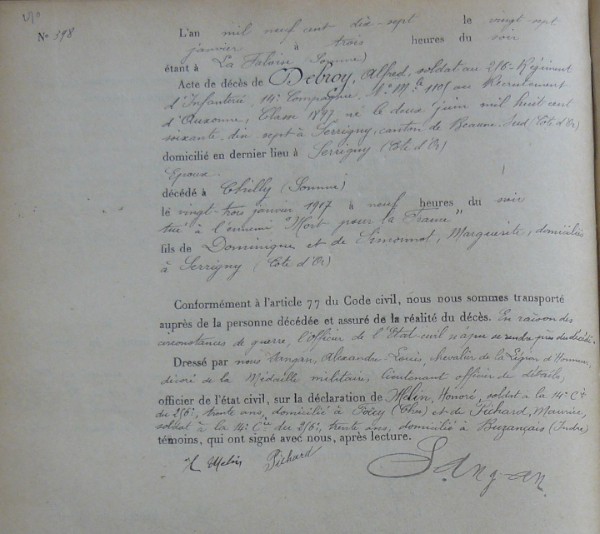 N° 598
L'an mil neuf cent dix-sept le vingt-sept
janvier à trois heures du soir
étant à La Faloise (Somme)
Acte de décès de Debroy, Alfred, soldat au 256e Régiment
d'Infanterie, 14e Compagnie, N° Mle 1105 au Recrutement
d'Auxonne, Classe 1897, né le deux juin mil huit cent
soixante dix sept à Serrigny, canton de Beaune-Sud (Côte d'Or)
domicilié en dernier lieu à Serrigny (Côte d'Or)
Epoux
décédé à Chilly (Somme)
le vingt-trois janvier 1917 à neuf heures du soir
tué à l'ennemi "Mort pour la France"
fils de Dominique et de Simonnot, Marguerite, domiciliés
à Serrigny (Côte d'Or)
Conformément à l'article 77 du Code civil, nous nous sommes transporté
auprès de la personne décédée et assuré de la réalité du décès. En raison des
circonstances de guerre, l'officier de l'Etat-civil n'a pu se rendre près du décédé.
Dressé par nous Alexandre-Louis, Chevalier de la Légion d'Honneur,
décoré de la Médaille militaire, lieutenant officier des détails,
officier de l'état civil, sur la déclaration de Melin, Honoré, soldat à la 14e Cie
du 256e, trente ans, domicilié à et de Pichard, Maurice,
soldat à la 14e Cie du 256e, trente ans, domicilié à Buzançais (Indre)
témoins, qui ont signé avec nous, après lecture.
H Melin Pichard